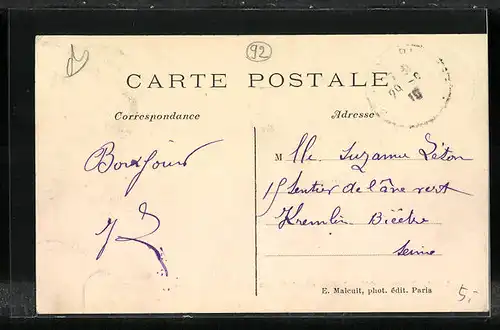 92
CARTE POSTALE
Correspondance
Adresse
Bonjour
Mlle. Suzanne Léton
15 Sentier de l'âne vert
Kremlin Bicêtre
Seine
E. Malcuit, phot. édit. Paris
5.-